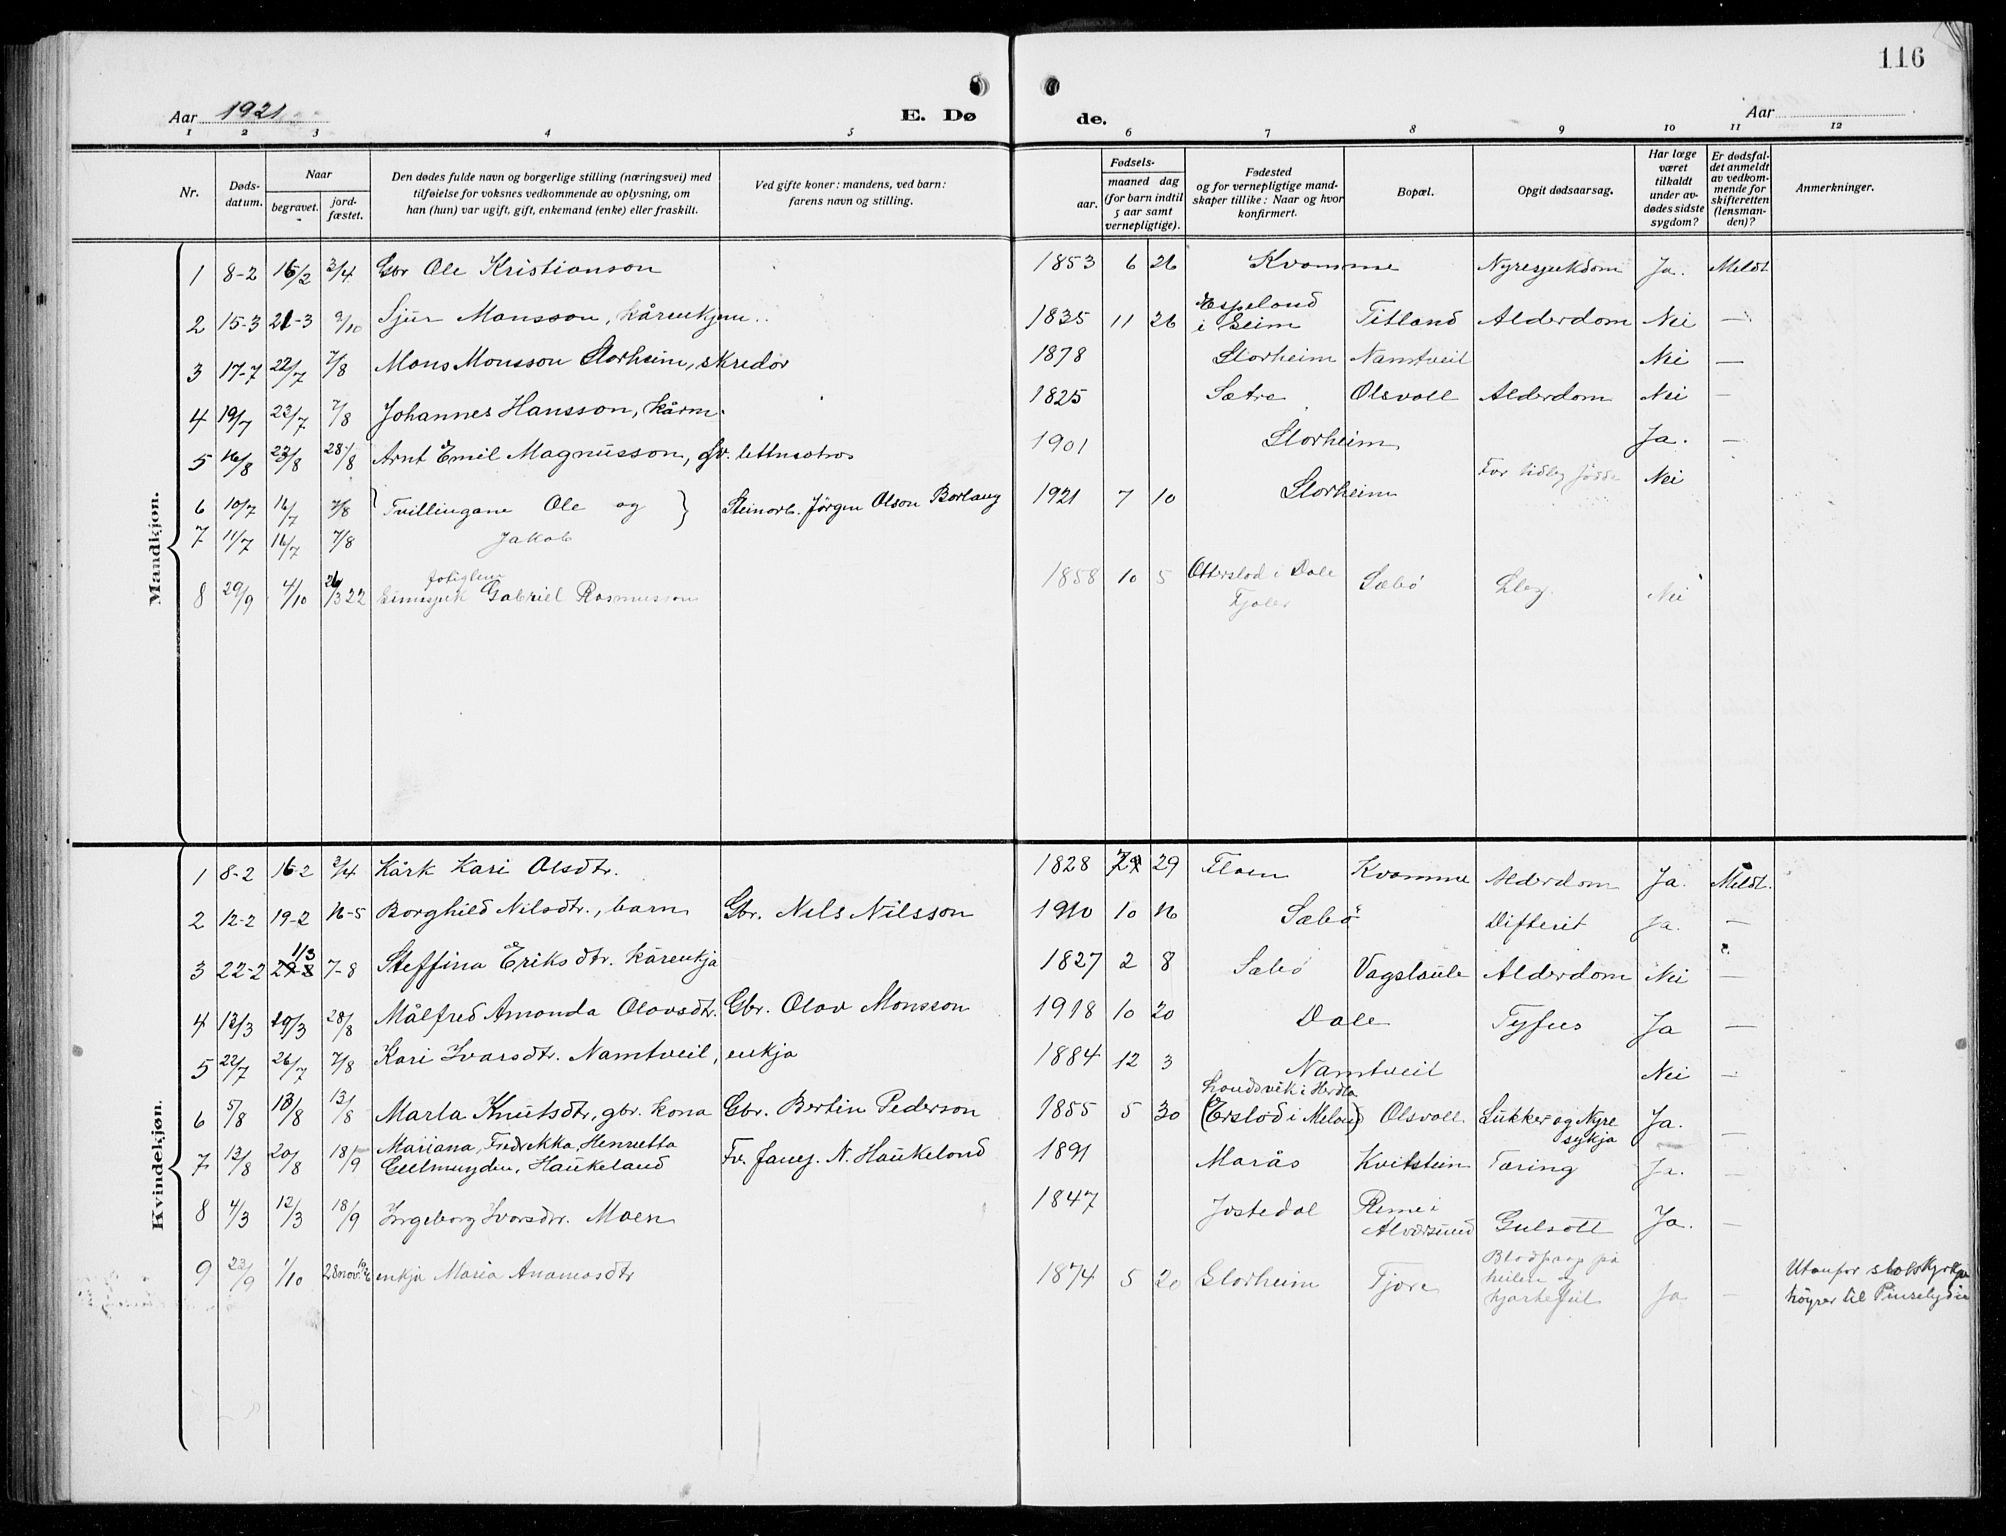 116
Aar 1921
E. Dø
de.
Aar
1 2 3 4 5 6 7 8 9 10 11 12
Nr.
Døds-
datum.
Naar
begravet.
jord-
fæstet.
Den dødes fulde navn og borgerlige stilling (næringsvei) med
tilføielse for voksnes vedkommende av oplysning, om
han (hun) var ugift, gift, enkemand (enke) eller fraskilt.
Ved gifte koner: mandens, ved barn:
farens navn og stilling.
Fødsels-
aar.
maaned dag
(for barn indtil
5 aar samt
vernepligtige).
Fødested
og for vernepligtige mand-
skaper tillike: Naar og hvor
konfirmert.
Bopæl.
Opgit dødsaarsag.
Har læge
været
tilkaldt
under av-
dødes sidste
sygdom?
Er dødsfal-
det anmeldt
av vedkom-
mende for
skifteretten
(lensman-
den)?
Anmerkninger.
Mandkjøn.
1 8-2 15/2 3/4 Gbr Ole Kristianson 1853 6 26 Kvamme Nyresjukdom Ja. Meldt
2 15-3 21-3 2/10 Sjur Monsson, kårenkjem.. 1835 11 26 Espeland i Eeim Titland Alderdom Nei —
3 17-7 22/7 7/8 Mons Monsson Storheim, skredar 1878 Storheim Namtveit Nei —
4 19/7 23/7 7/8 Johannes Hansson, kårm. 1825 Sætre Olsvoll Alderdom Nei —
5 16/8 23/8 28/8 Arnt Emil Magnusson, 1901 Storheim Ja. —
6 10/7 16/7 7/8 Tvillingane Ole og Steinarb. Jörgen Olson Borlaug 1921 7 10 Storheim For tidleg fødde Nei
7 11/7 16/7 7/8 Jakob
8 20/9 4/10 26/3 22 Gabriel Rasmusson 1858 10 5 Otterstod i Dale Fjaler Sæbö Slag. Nei
Kvindekjøn.
1 8-2 16-2 3/4 Kårk Kari Olsdtr. 1828 29 Floen Kvamme Alderdom Ja. Meldt.
2 12-2 19-2 16-5 Borghild Nilsdtr., barn Gbr. Nils Nilsson 1910 10 16 Sæbö Difterit Ja. —
3 22-2 1/3 7-8 Steffina Eriksdtr. kårenkja 1827 2 8 Sæbö Vagstaule Alderdom Nei —
4 13/3 20/3 28/8 Målfred Amanda Olavsdtr. Gbr. Olav Monsson 1918 10 20 Dale Tyfus Ja —
5 22/7 26/7 7/8 Kari Ivarsdtr. Namtveit, enkja 1884 12 3 Namtveit Nei —
6 5/8 13/8 13/8 Marta Knutsdtr, gbr. kona Gbr. Bertin Pederson 1855 5 30 Landsvik i Herdla (Erstad i Meland) Olsvoll. Sukker og Nyre sykja Ja. —
7 13/8 20/8 18/9 Mariana, Fredrikka, Henrietta Geelmuyden, Haukeland Fv. Janez. N. Haukeland 1891 Marås Kvitstein Tæring Ja. —
8 4/3 12/3 18/9 Ingeborg Ivarsdtr. Moen 1847 Jostedal Reme i Alversund Gulsott Ja. —
9 23/9 1/10 28 nov. enkja Maria Ananiasdtr 1874 5 20 Storheim Fjøre Blodpropp på heilen og hjartefeil Ja — Utanfor statskyrkja høyrer til Pinselydin